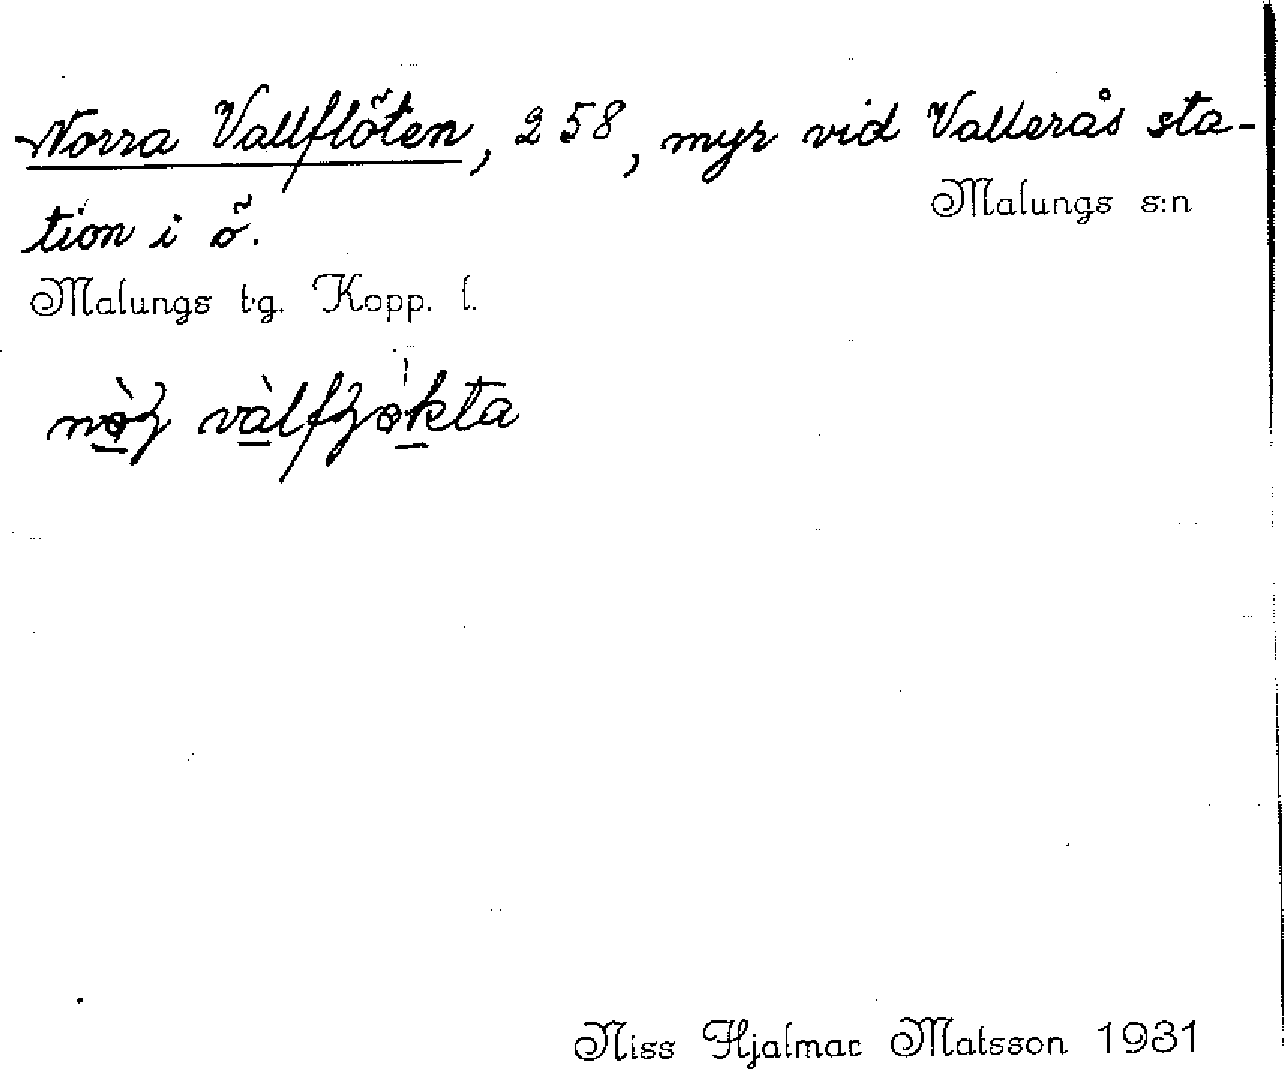 Norra Vallflöten, 258, myr vid Vallerås sta-
Malungs s:n
tion i ö.
Malungs tg. Kopp. l.
Niss Hjalmar Matsson 1931